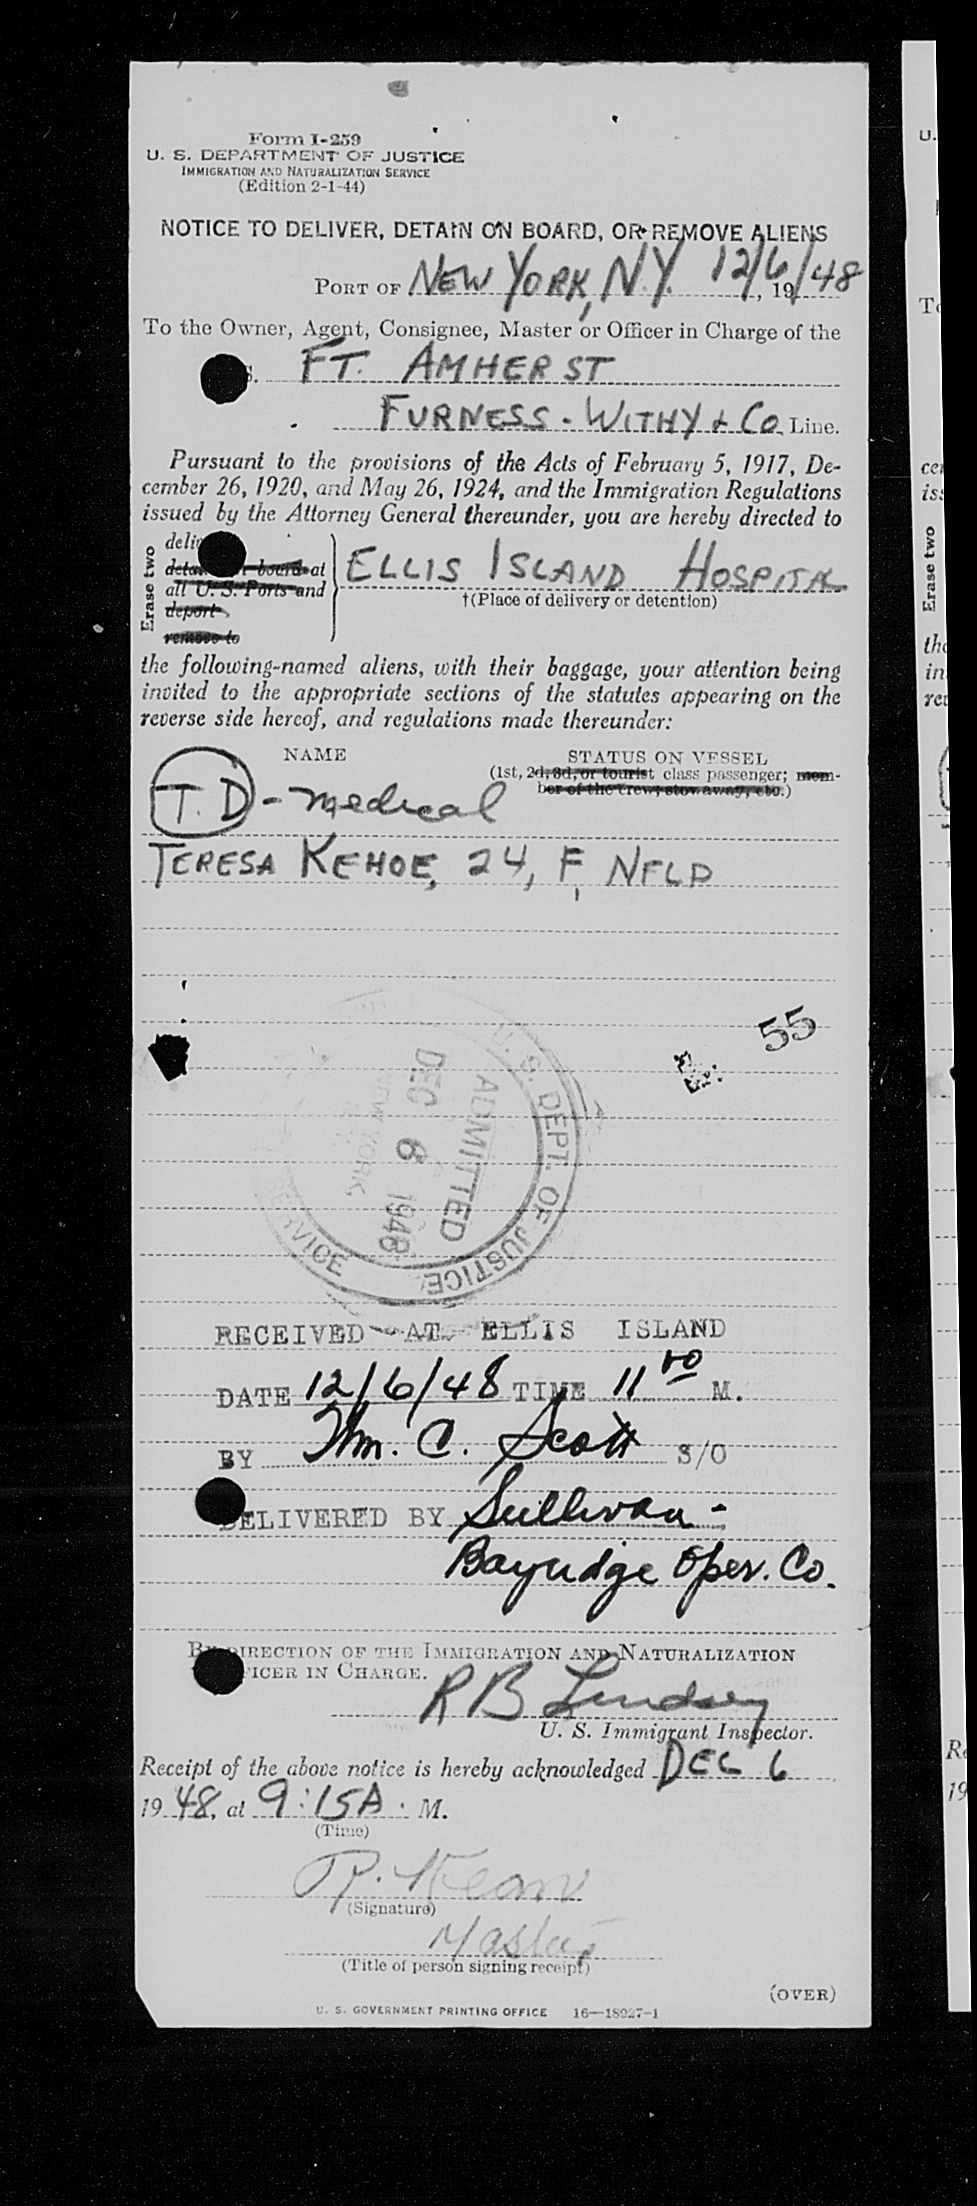 Form I-259
U. S. DEPARTMENT OF JUSTICE
IMMIGRATION AND NATURALIZATION SERVICE
(Edition 2-1-44)
NOTICE TO DELIVER, DETAIN ON BOARD, OR REMOVE ALIENS
PORT OF NEW YORK, N.Y. 12/6/48, 19
To the Owner, Agent, Consignee, Master or Officer in Charge of the
S. FT. AMHERST
FURNESS-WITHY & CO. Line.
Pursuant to the provisions of the Acts of February 5, 1917, De-
cember 26, 1920, and May 26, 1924, and the Immigration Regulations
issued by the Attorney General thereunder, you are hereby directed to
Erase two
deliv
deta board at
all U. S. Ports and
deport
remove to
ELLIS ISLAND HOSPITAL
†(Place of delivery or detention)
the following-named aliens, with their baggage, your attention being
invited to the appropriate sections of the statutes appearing on the
reverse side hereof, and regulations made thereunder:
NAME STATUS ON VESSEL
(1st, 2d, 3d, or tourist class passenger; mem-
ber of the crew; stowaway, etc.)
T.D - medical
TERESA KEHOE, 24, F, NFLD
55
U. S. DEPT. OF JUSTICE
ADMITTED
DEC 6 1948
NEW YORK,
SERVICE
RECEIVED AT ELLIS ISLAND
DATE 12/6/48 TIME 11 00 M.
BY Wm. C. Scott S/O
DELIVERED BY Sullivan -
Bayridge Oper. Co.
BY DIRECTION OF THE IMMIGRATION AND NATURALIZATION
FICER IN CHARGE.
R B Lindsey
U. S. Immigrant Inspector.
Receipt of the above notice is hereby acknowledged DEC 6
19 48, at 9:15A. M.
(Time)
R. Kean
(Signature)
Master
(Title of person signing receipt)
(OVER)
U. S. GOVERNMENT PRINTING OFFICE 16—18927-1
U.
To
cer
iss
Erase two
the
in
rev
Re
19